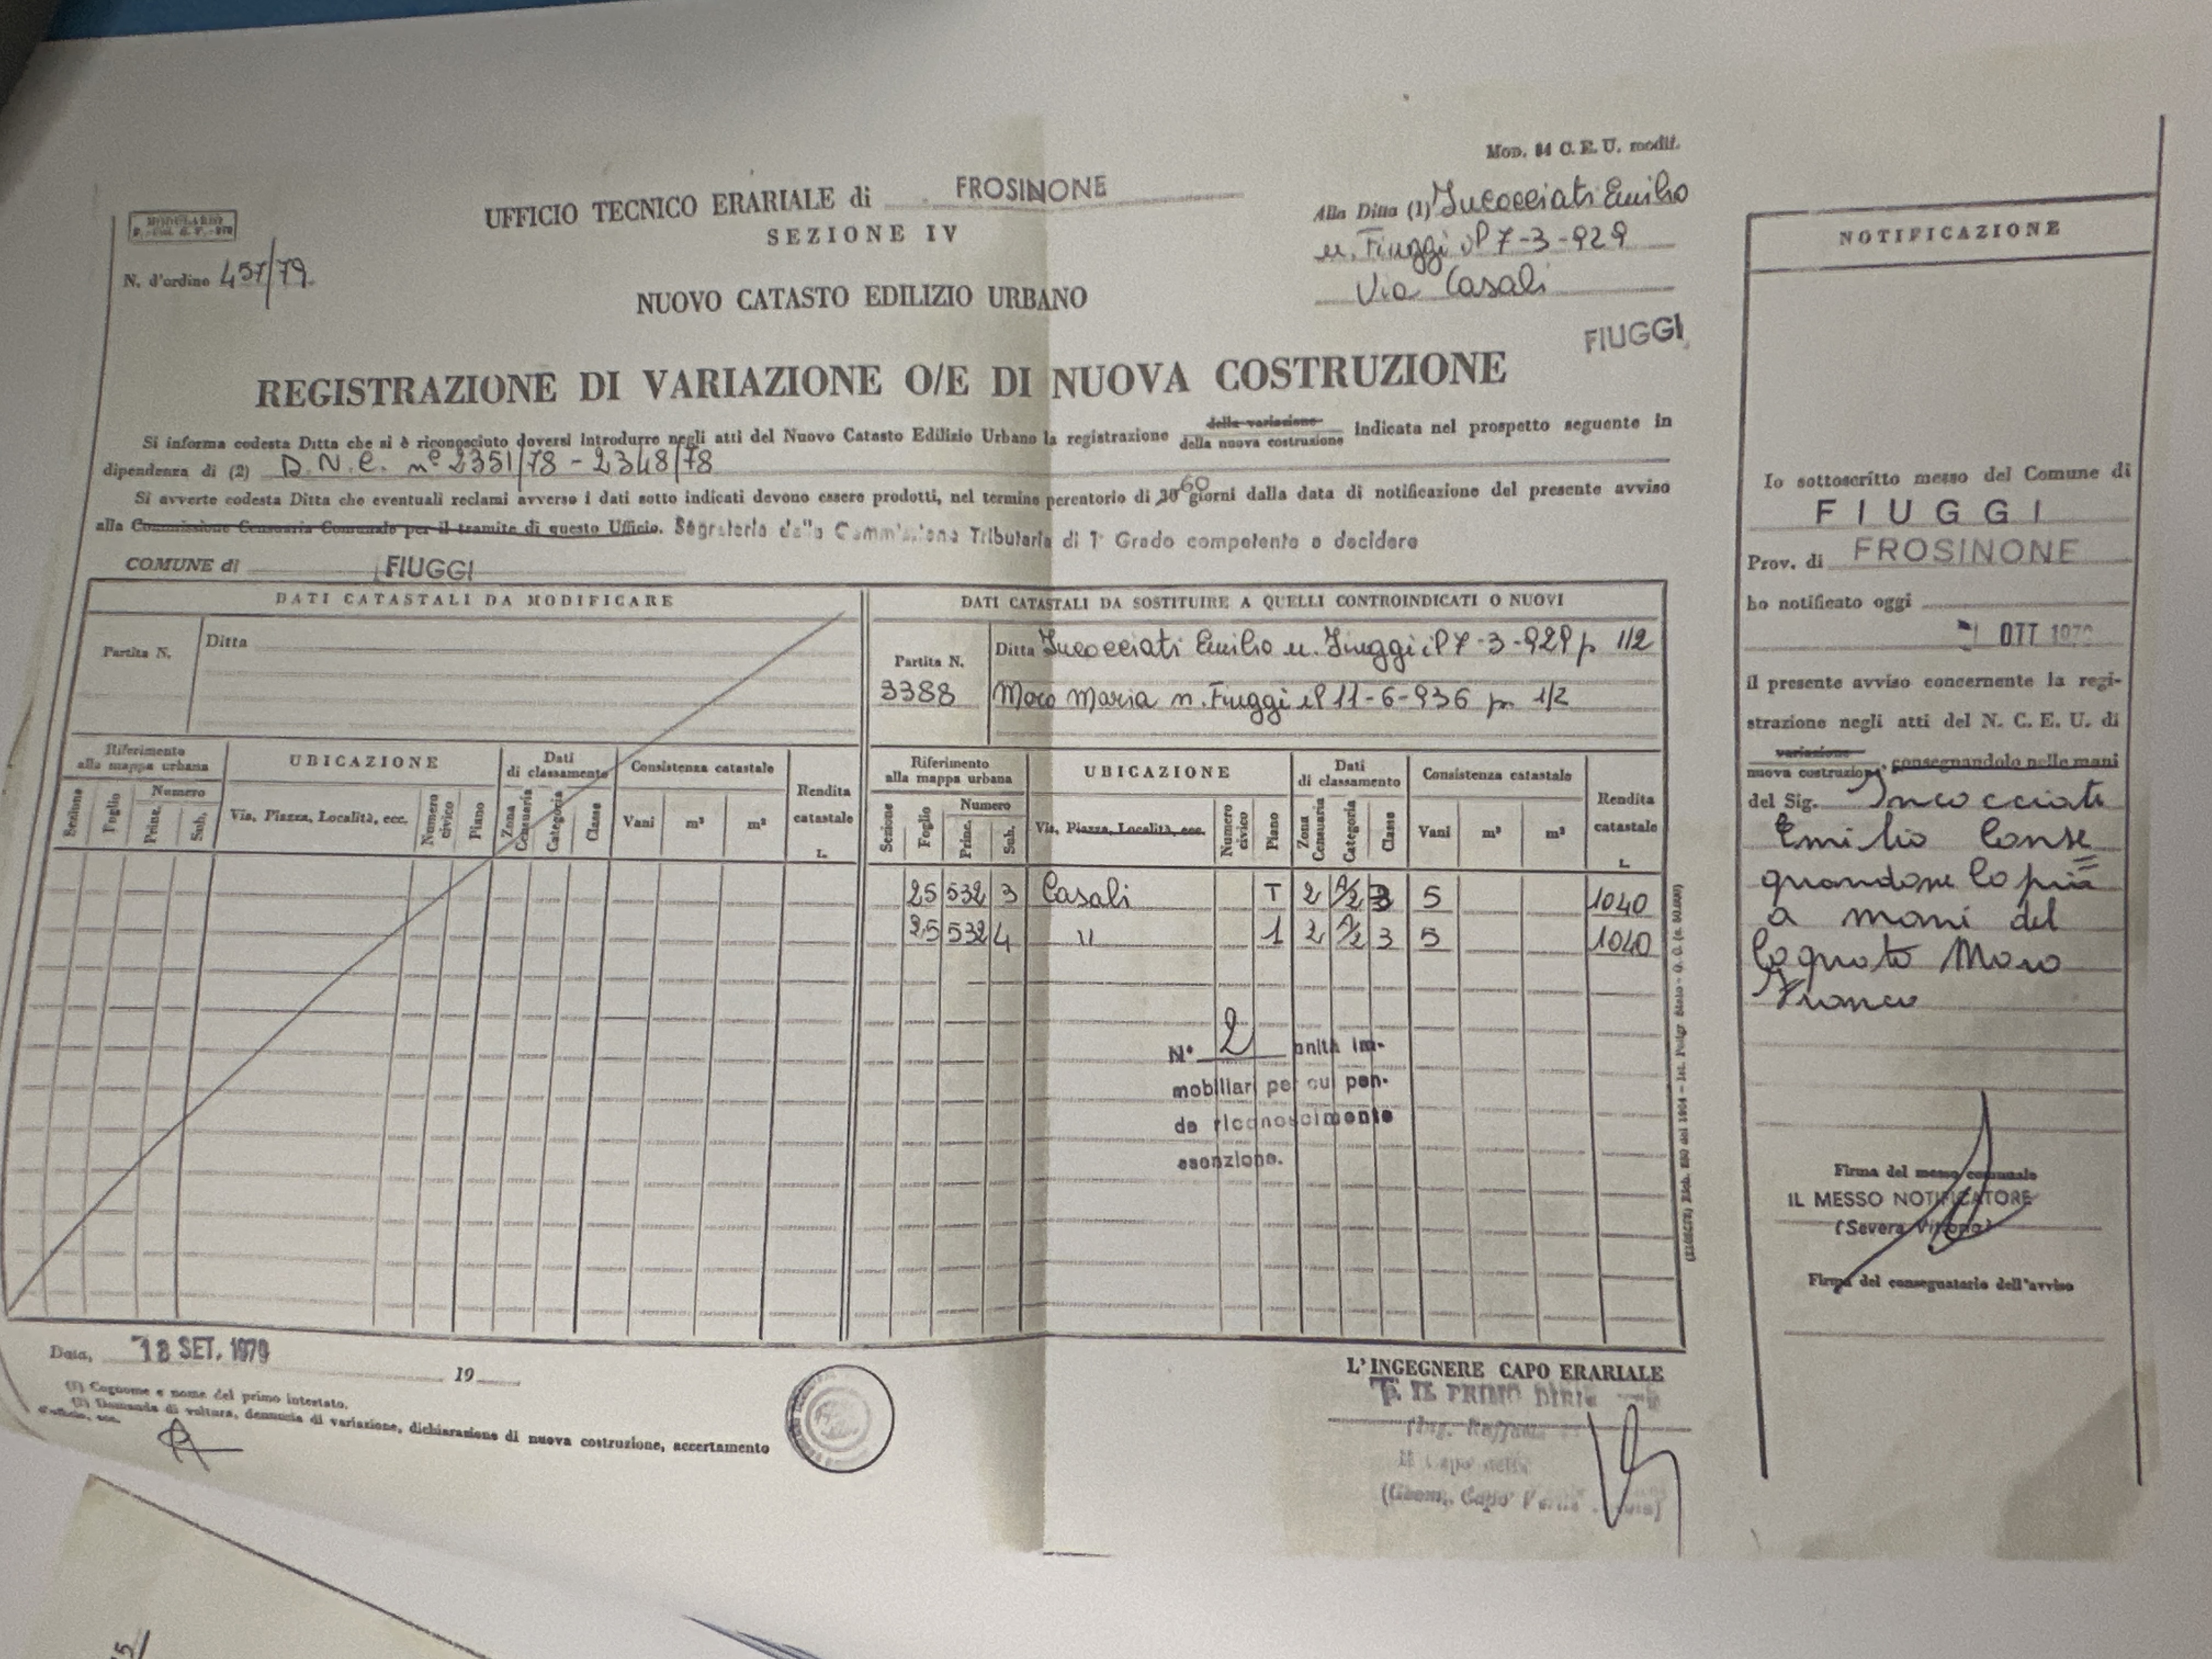 Mod. 84 C. E. U. modif.
MODULARIO
UFFICIO TECNICO ERARIALE di FROSINONE
SEZIONE IV
N. d'ordine 457/79
NUOVO CATASTO EDILIZIO URBANO
Alla Ditta (1) Incocciati Emilio
n. Fiuggi il 7-3-929
Via Casali
FIUGGI
REGISTRAZIONE DI VARIAZIONE O/E DI NUOVA COSTRUZIONE
Si informa codesta Ditta che si è riconosciuto doversi introdurre negli atti del Nuovo Catasto Edilizio Urbano la registrazione della variazione della nuova costruzione indicata nel prospetto seguente in
dipendenza di (2) D.N.C. n° 2351/78 - 2348/78
Si avverte codesta Ditta che eventuali reclami avverso i dati sotto indicati devono essere prodotti, nel termine perentorio di 30 60 giorni dalla data di notificazione del presente avviso
alla Commissione Censuaria Comunale per il tramite di questo Ufficio. Segreteria della Commissione Tributaria di 1° Grado competente a decidere
COMUNE di FIUGGI
DATI CATASTALI DA MODIFICARE
Partita N.
Ditta
Riferimento alla mappa urbana
UBICAZIONE
Dati di classamento
Consistenza catastale
Rendita catastale
L.
Sezione Foglio Numero Princ. Sub. Via, Piazza, Località, ecc. Numero civico Piano Zona Censuaria Categoria Classe Vani m² m³
DATI CATASTALI DA SOSTITUIRE A QUELLI CONTROINDICATI O NUOVI
Partita N. 3388
Ditta Incocciati Emilio n. Fiuggi il 7-3-929 p 1/2
Moro Maria n. Fiuggi il 11-6-936 p 1/2
Riferimento alla mappa urbana
UBICAZIONE
Dati di classamento
Consistenza catastale
Rendita catastale
L.
Sezione Foglio Numero Princ. Sub. Via, Piazza, Località, ecc. Numero civico Piano Zona Censuaria Categoria Classe Vani m² m³
25 532 3 Casali T 2 A/2 3 5 1040
25 532 4 " 1 2 A/2 3 5 1040
N° 2 unità im-
mobiliari per cui pen-
de riconoscimento
esenzione.
Data, 18 SET. 1979 19
(1) Cognome e nome del primo intestato.
(2) Domanda di voltura, denuncia di variazione, dichiarazione di nuova costruzione, accertamento
d'ufficio, ecc.
L'INGEGNERE CAPO ERARIALE
IL PRIMO
NOTIFICAZIONE
Io sottoscritto messo del Comune di
FIUGGI
Prov. di FROSINONE
ho notificato oggi
OTT 1979
il presente avviso concernente la regi-
strazione negli atti del N. C. E. U. di
variazione
nuova costruzione, consegnandolo nelle mani
del Sig. Incocciati
Emilio Conse
gnandone copia
a mani del
Cognato Moro
Franco
Firma del messo comunale
IL MESSO NOTIFICATORE
(Severa Vittorio)
Firma del consegnatario dell'avviso